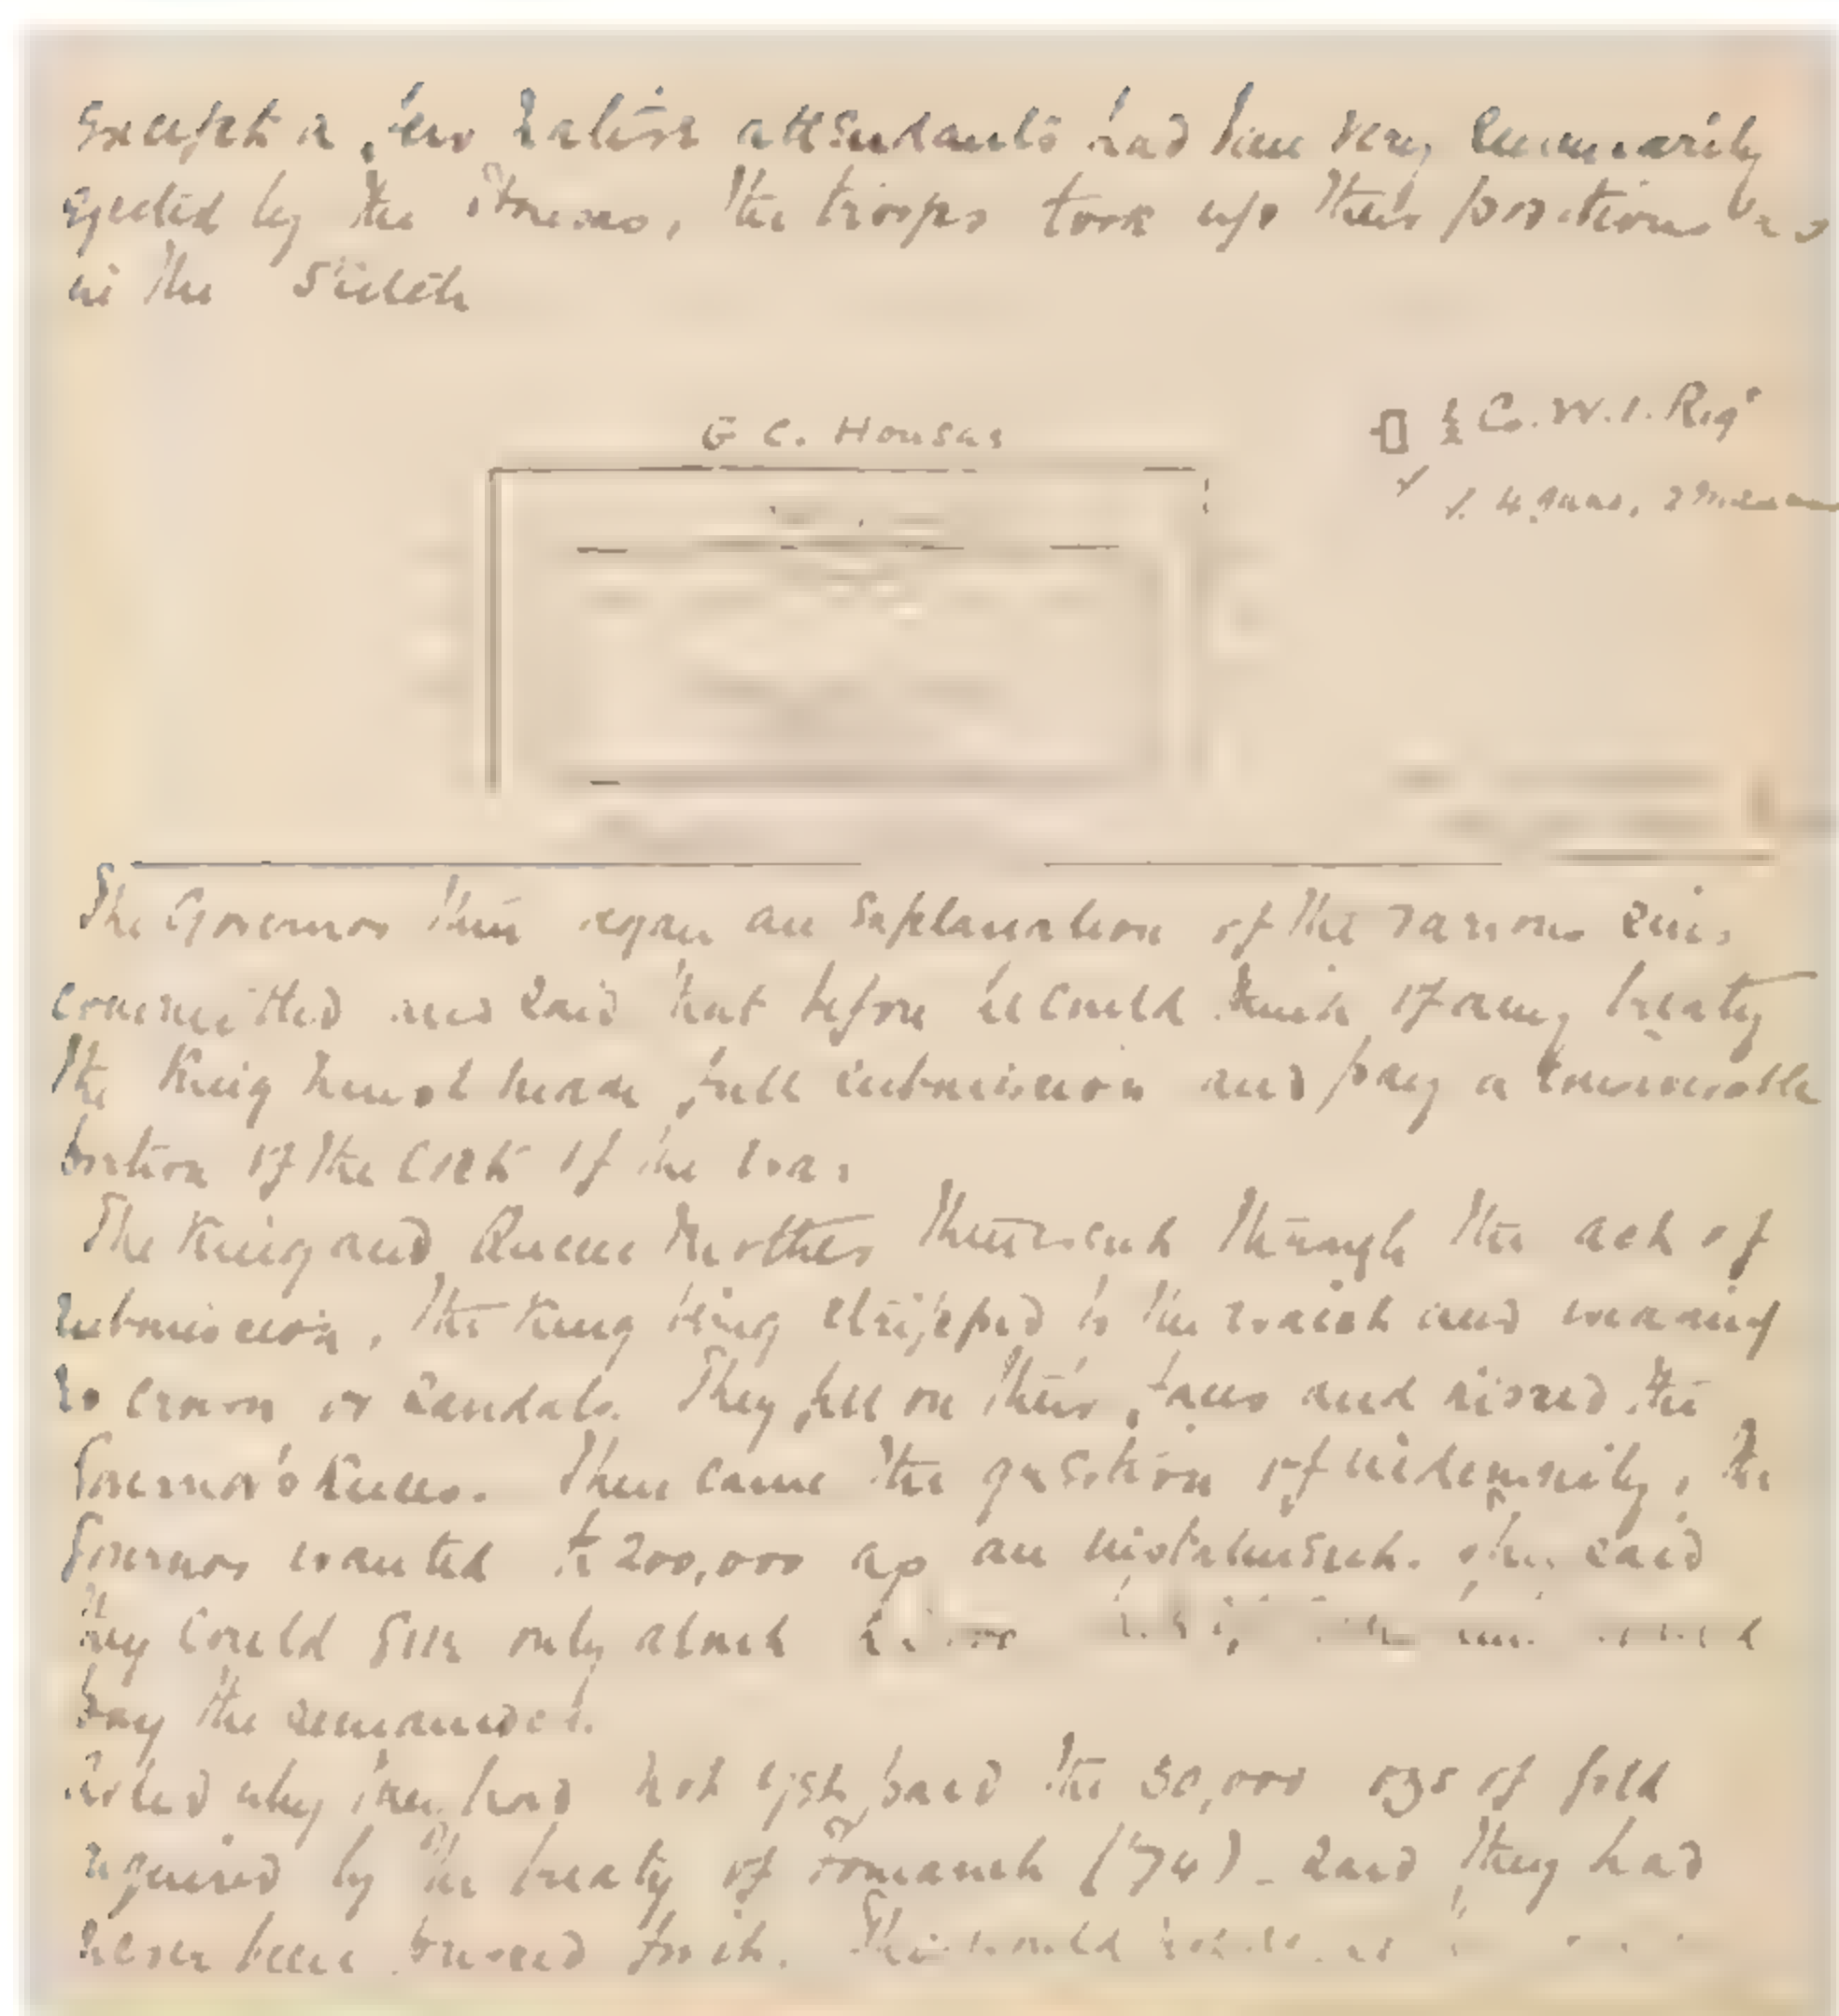 Except a few native attendants had been very summarily
ejected by the Housas, the troops took up their positions as
in the Sketch
G C. Housas
½ Co. W.I. Reg^t
4 guns, 2
The Governor then began an explanation of the various
committed and said that before he could think of any treaty
the King must made full submission and pay a considerable
portion of the cost of the war
The King and Queen Mother then went through the act of
submission, the King being stripped to the waist and wearing
no crown or sandals. They fell on their faces and kissed the
Governor's knees. Then came the question of indemnity, the
Governor wanted £200,000 as an instalment. They said
they could give only about
pay the remainder.
Asked why they had not yet paid the 50,000 ozs of gold
required by the treaty of Fomanah ('74) - said they had
never been pressed for it.